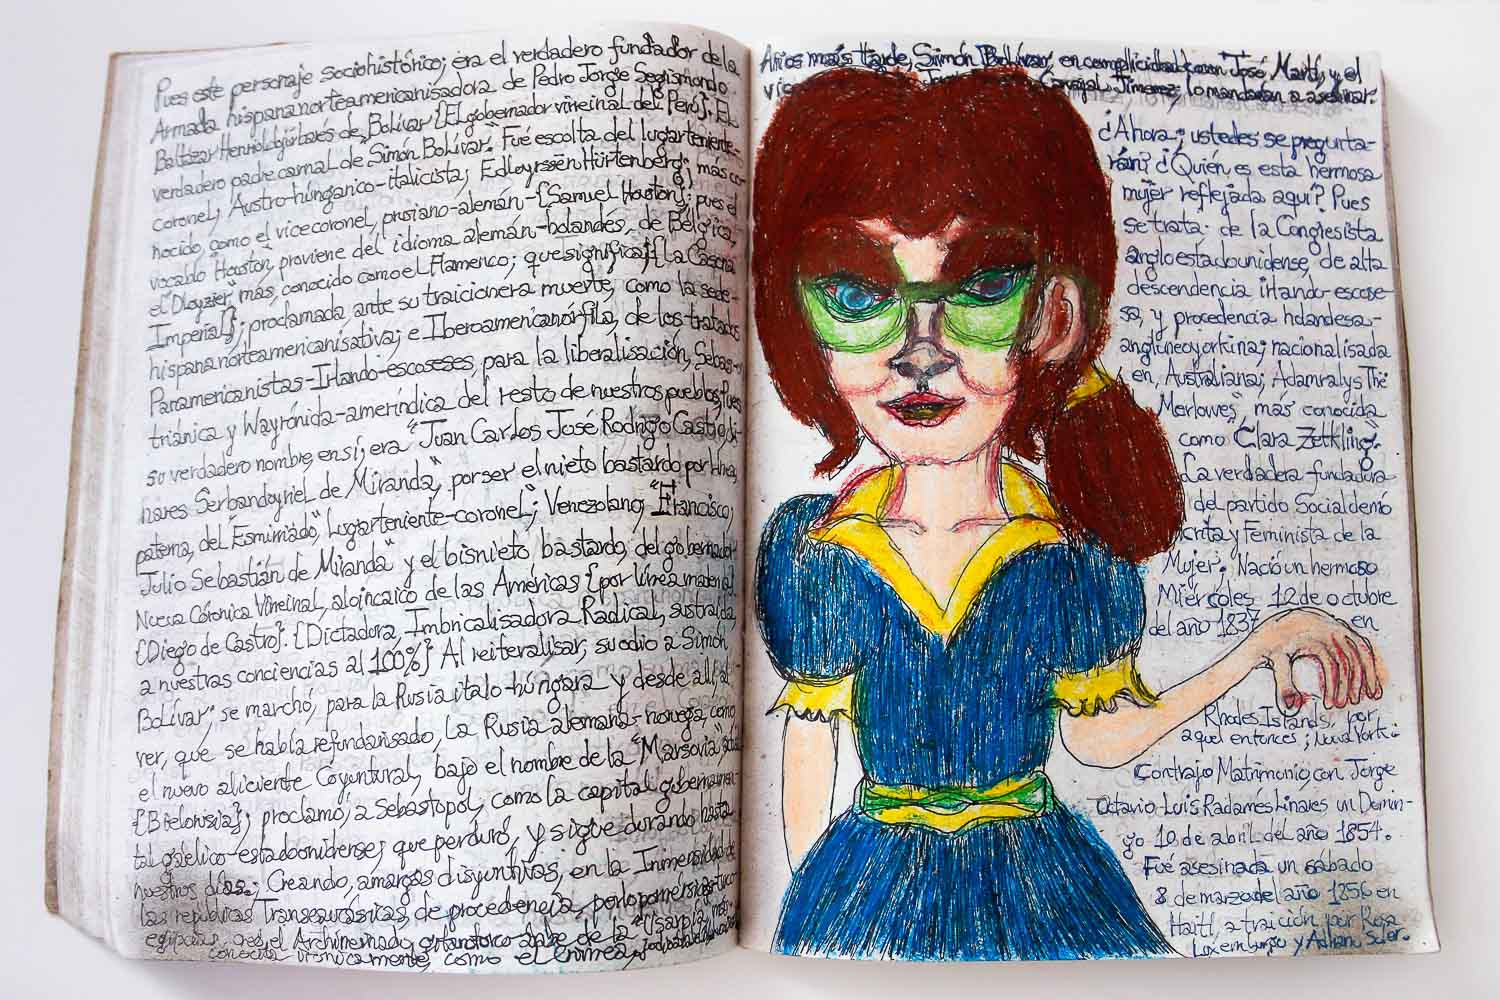 Pues este personaje sociohistórico; era el verdadero fundador de la
Armada hispananorteamericanisadora de Pedro Jorge Segismondo
Baltazar de Bolívar {El gobernador virreinal del Perú}. El
verdadero padre carnal de "Simón Bolívar". Fué escolta del lugarteniente-
coronel, Austro-húnganico-italicista; Hürtenberg; más co-
nocido, como el vicecoronel, prusiano-alemán-{Samuel Houston}; pues el
vocablo "Houston", proviene del idioma alemán-holandés, de Bélgica,
el más, conocido como el Flamenco; que significa {La Casona
Imperial}; proclamada ante su traicionera muerte, como la sede-
hispananorteamericanisativa; e Iberoamericanórfila, de los tratados
Panamericanistas-Irlando-escoseses, para la liberalisación, Sebas-
triánica y Wayrónida-ameríndica del resto de nuestros pueblos, pues
su verdadero nombre, en sí; era "Juan Carlos José Rodrigo Castro, Li-
nares Serbandoyriel de Miranda", por ser el nieto bastardo por línea,
paterna, del "Esmirriado", Lugarteniente-coronel; Venezolano "Francisco,
Julio Sebastián de Miranda" y el bisnieto bastardo, del gobernador
Nueva Córonica Virreinal, aloincaico de las Américas {por línea maternal
{Diego de Castro}. {Dictadora, Imbricalisadora Radical, sustraída
a nuestras conciencias al 100%} Al reiteralisar, su odio a Simón
Bolívar; se marchó, para la Rusia ítalo-húngara y desde allí, al
ver, que se había refundarisado, La Rusia alemana-noruega, como
el nuevo alicuente Coyuntural, bajo el nombre de la "Marsovia",
{Bielorusia}; proclamó, a Sebastopol, como la capital gubernamen-
tal gaélico-estadounidense; que perduró, y sigue durando hasta
nuestros días; Creando, amargas disyuntivas, en la Inimensidad de
las repúblicas Transeurásicas, de procedencia,
egipcias, de la
conocida irónicamente, como el Crimea,
Años más tarde, Simón Bolívar, en complicidad con José, Martí, y el
Carvajal, Jímenez, lo mandaron a asesinar.
¿Ahora; ustedes se pregunta-
rán? ¿Quién es esta hermosa
mujer reflejada aquí? Pues
se trata de la Congresista
angloestadounidense, de alta
descendencia irlando-escose-
sa, y procedencia holandesa-
anglineoyorkina; nacionalisada
en, Australiana; Adamralys The
Merlowes", más conocida
como "Clara Zetkling".
La verdadera fundadora
del partido Socialdemó
crita y Feminista de la
Mujer. Nació un hermoso
Miércoles 12 de octubre
del año 1837 en
Rhodes Islands, por
aquel entonces; Nueva York.
Contrajo Matrimonio, con Jorge
Octavio Luis Radamés Linares un Domin-
go 10 de abril del año 1854.
Fué asesinada un sábado
8 de marzo del año 1856 en
Haití, a traición por Rosa
Luxemburgo y Adrian